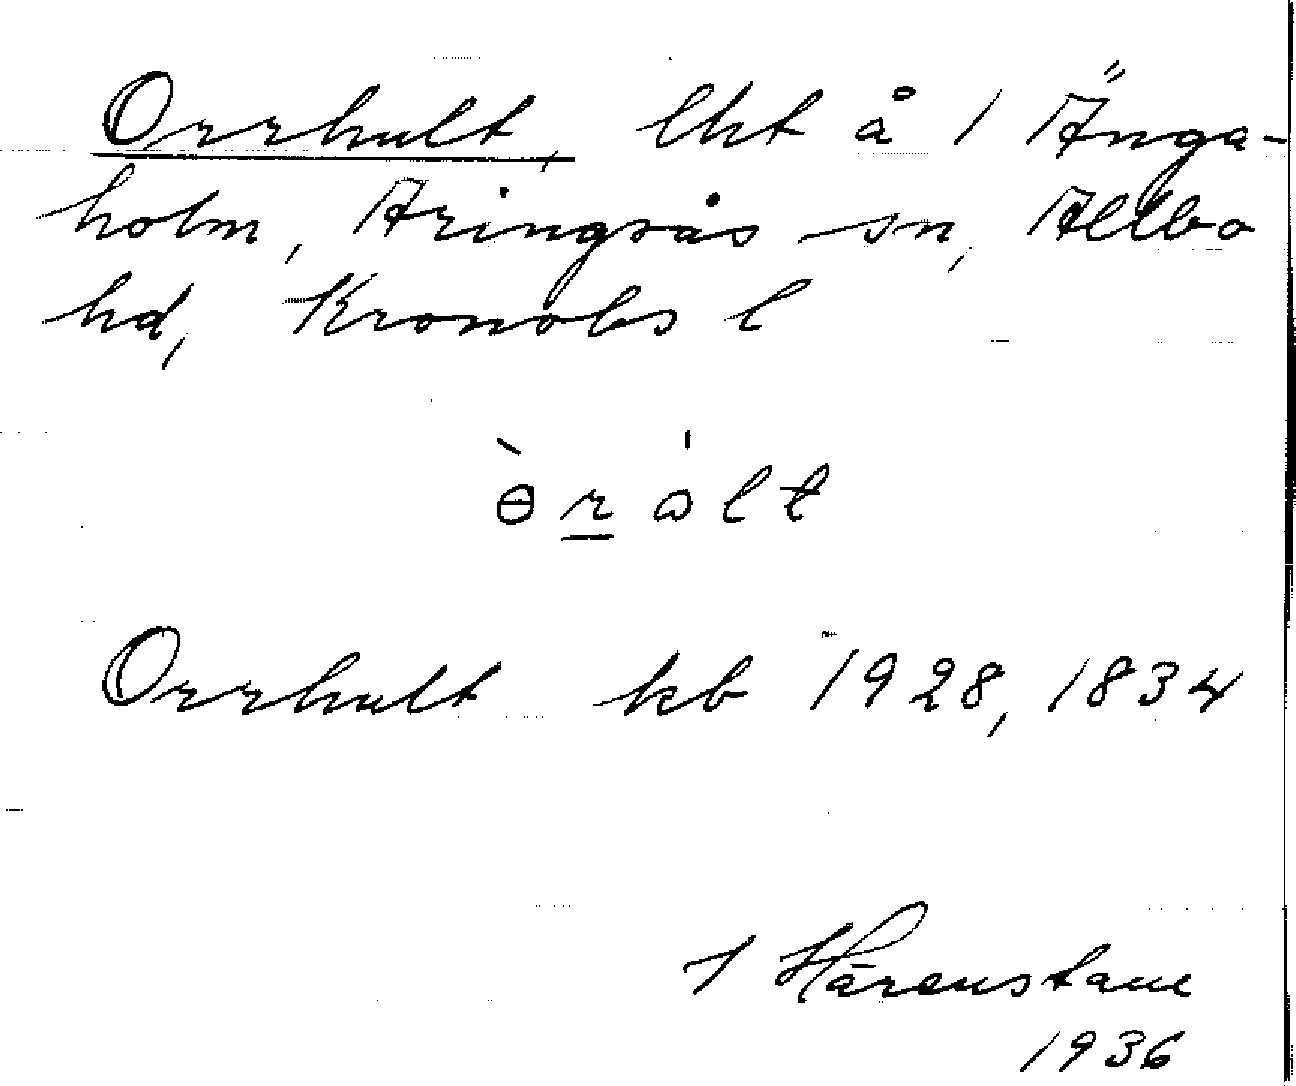 Orrhult, lht å 1 Änga-
holm, Aringsås sn, Allbo
hd, Kronobs l
ɵ̀r̲ ɷ́lt
Orrhult kb 1928, 1834
I Härenstam
1936